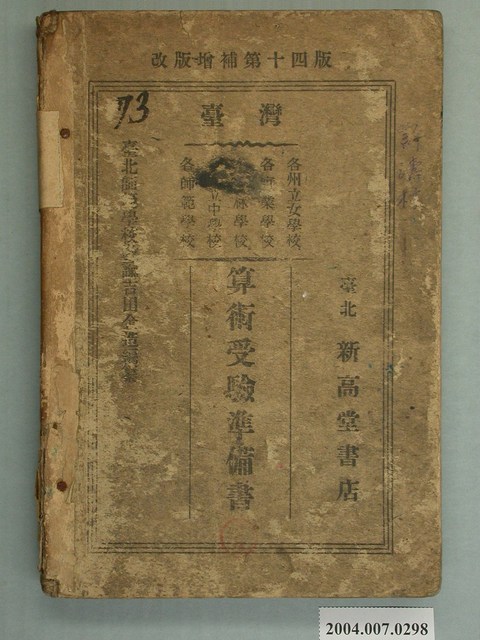 改版增補第十四版
73
臺灣
各州立女學校
各業學校
林學校
立中學校
各師範學校
臺北 新高堂書店
算術受驗準備書
臺北師範學校教諭吉田
2004.007.0298